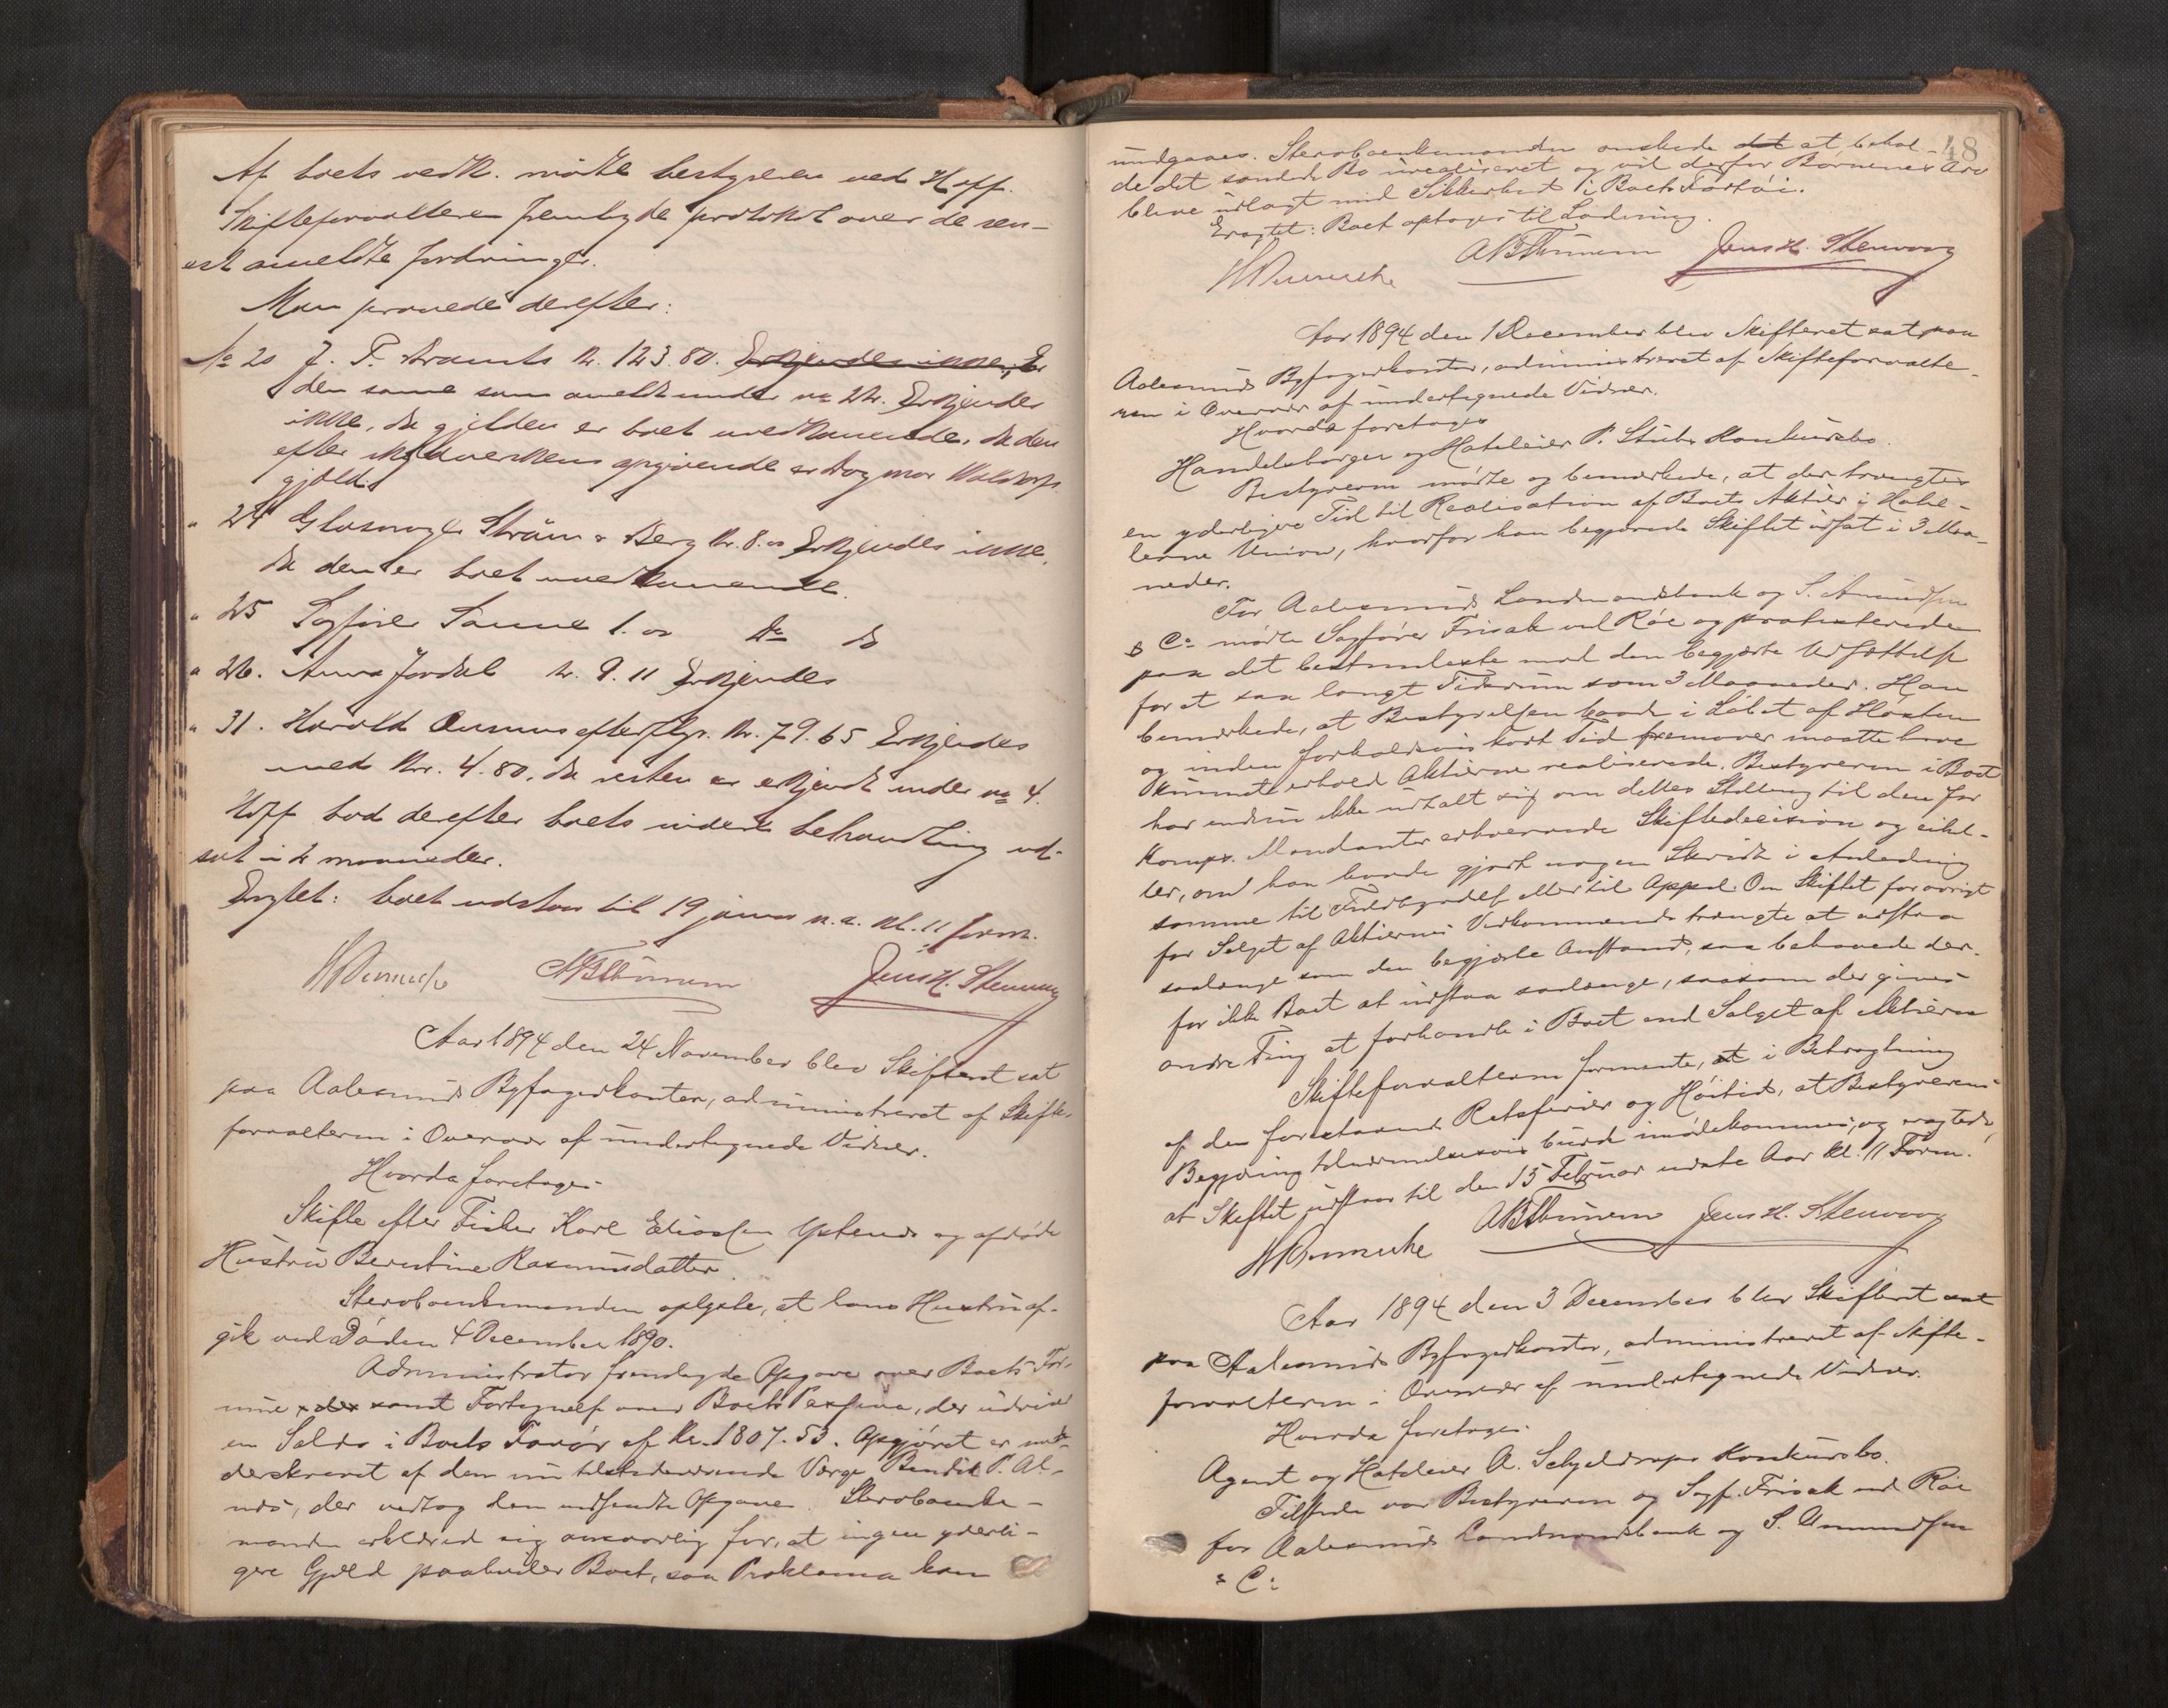 Af boets vedk. mødte bestyreren ved Hoff.
Skifteforvalteren fremlagde protokol over de sen-
est anmeldte fordringer.
Man prøvede derefter:
No 20 J. P. Kr. 123.80. Erkjendes ikke, Er
den samme som anmeldt under no 24. Erkjendes
ikke, da gjelden er boet uvedkommende, da den
efter opgivende er Dagmar
gjæld.
" 24 Glasmager Strøm & Berg Kr. 8.00 Erkjendes ikke,
da den er boet uvedkommende.
" 25 Sagfører Sanne 1.00 Do do
" 26. Anna Jordal kr. 9.11 Erkjendes
" 31. Harald efterflgr. Kr. 79.65 Erkjendes
med Kr. 4.80, da resten er erkjendt under no 4.
Hoff bad derefter boets videre behandling ud-
sat i 2 maaneder.
Eragtet: boet udstaar til 19 januar n.a. kl. 11 form.
Jens H. Stenvaag
Aar 1894 den 24 November blev Skifteret sat
paa Aalesunds Byfogedkontor, administreret af Skifte-
forvalteren i Overvær af undertegnede Vidner.
Hvorda foretoges
Skifte efter Fisker Karl Eliassen Ystenes og afdøde
Hustru Berntine Rasmusdatter.
Stervboenkemanden oplyste, at hans Hustru af-
gik ved Døden 4 December 1890.
Administrator fremlagde Opgave over Boets For-
mue samt Fortegnelse over Boets Passiva, der udviser
en Saldo i Boets Favør af Kr. 1807.53. Opgjøret er un-
derskrevet af den nu tilstedeværende Værge Bendik P. Al-
nes, der vedtog den indsendte Opgave. Stervboenke-
manden erklæred sig ansvarlig for, at ingen yderli-
gere Gjæld paahviler Boet, saa Proklama kan
48
undgaaes. Stervboenkemanden ønskede det at behol-
de det samlede Bo urealiseret og vil derfor Børnenes Arv
blive udlagt med Sikkerhed i Boets Fartøi.
Eragtet: Boet optages til Lodning.
Jens H. Stenvaag
Aar 1894 den 1 December blev Skifteret sat paa
Aalesunds Byfogedkontor, administreret af Skifteforvalte-
ren i Overvær af undertegnede Vidner.
Hvorda foretoges
Handelsborger og Hoteleier P. Stubs Konkursbo.
Bestyreren mødte og bemærkede, at der trængtes
en yderligere Tid til Realisation af Boets Aktier i Hotel-
lerne Union, hvorfor han begjærede Skiftet udsat i 3 Maa-
neder.
For Aalesunds Landmandsbank og S. Amundsen
& Co mødte Sagfører Frisak ved Röe og protesterede
paa det bestemteste mod den begjærte Udsættelse
for et saa langt Tidsrum som 3 Maaneder. Han
bemærkede, at Bestyrelsen baade i Løbet af Høsten
og inden forholdsvis kort Tid fremover maatte have
kunnet erholdt Aktierne realiserede. Bestyreren i Boet
har endnu ikke udtalt sig om dettes Stilling til den for
Komps. Mandanter erhvervede Skiftedecision og eihel-
ler, om han havde gjort nogen Skridt i Anledning
samme til Fuldbyrdelse eller til Appel. Om Skiftet forøvrigt
for Salget af Aktiernes Vedkommende trængte at udstaa
saalænge som den begjærte Anstand, saa behøvede der-
for ikke Boet at udstaa saalænge, saasom der gives
andre Ting at forhandle i Boet end Salget af Aktierne
Skifteforvalteren formente, at i Betragtning
af den forestaaende Retsferier og Høitid, at Bestyrerens
Begjæring tilnærmelsesvis burde imødekommes, og eragtede,
at Skiftet udstaar til den 15 Februar næste Aar kl. 11 Form.
Jens H. Stenvaag
Aar 1894 den 3 December blev Skifteret sat
paa Aalesunds Byfogedkontor, administreret af Skifte-
forvalteren i Overvær af undertegnede Vidner.
Hvorda foretoges
Agent og Hoteleier A. Schjelderups Konkursbo.
Tilstede var Bestyreren og Sagf. Frisak ved Röe
for Aalesunds Landmandsbank og S. Amundsen
& Co